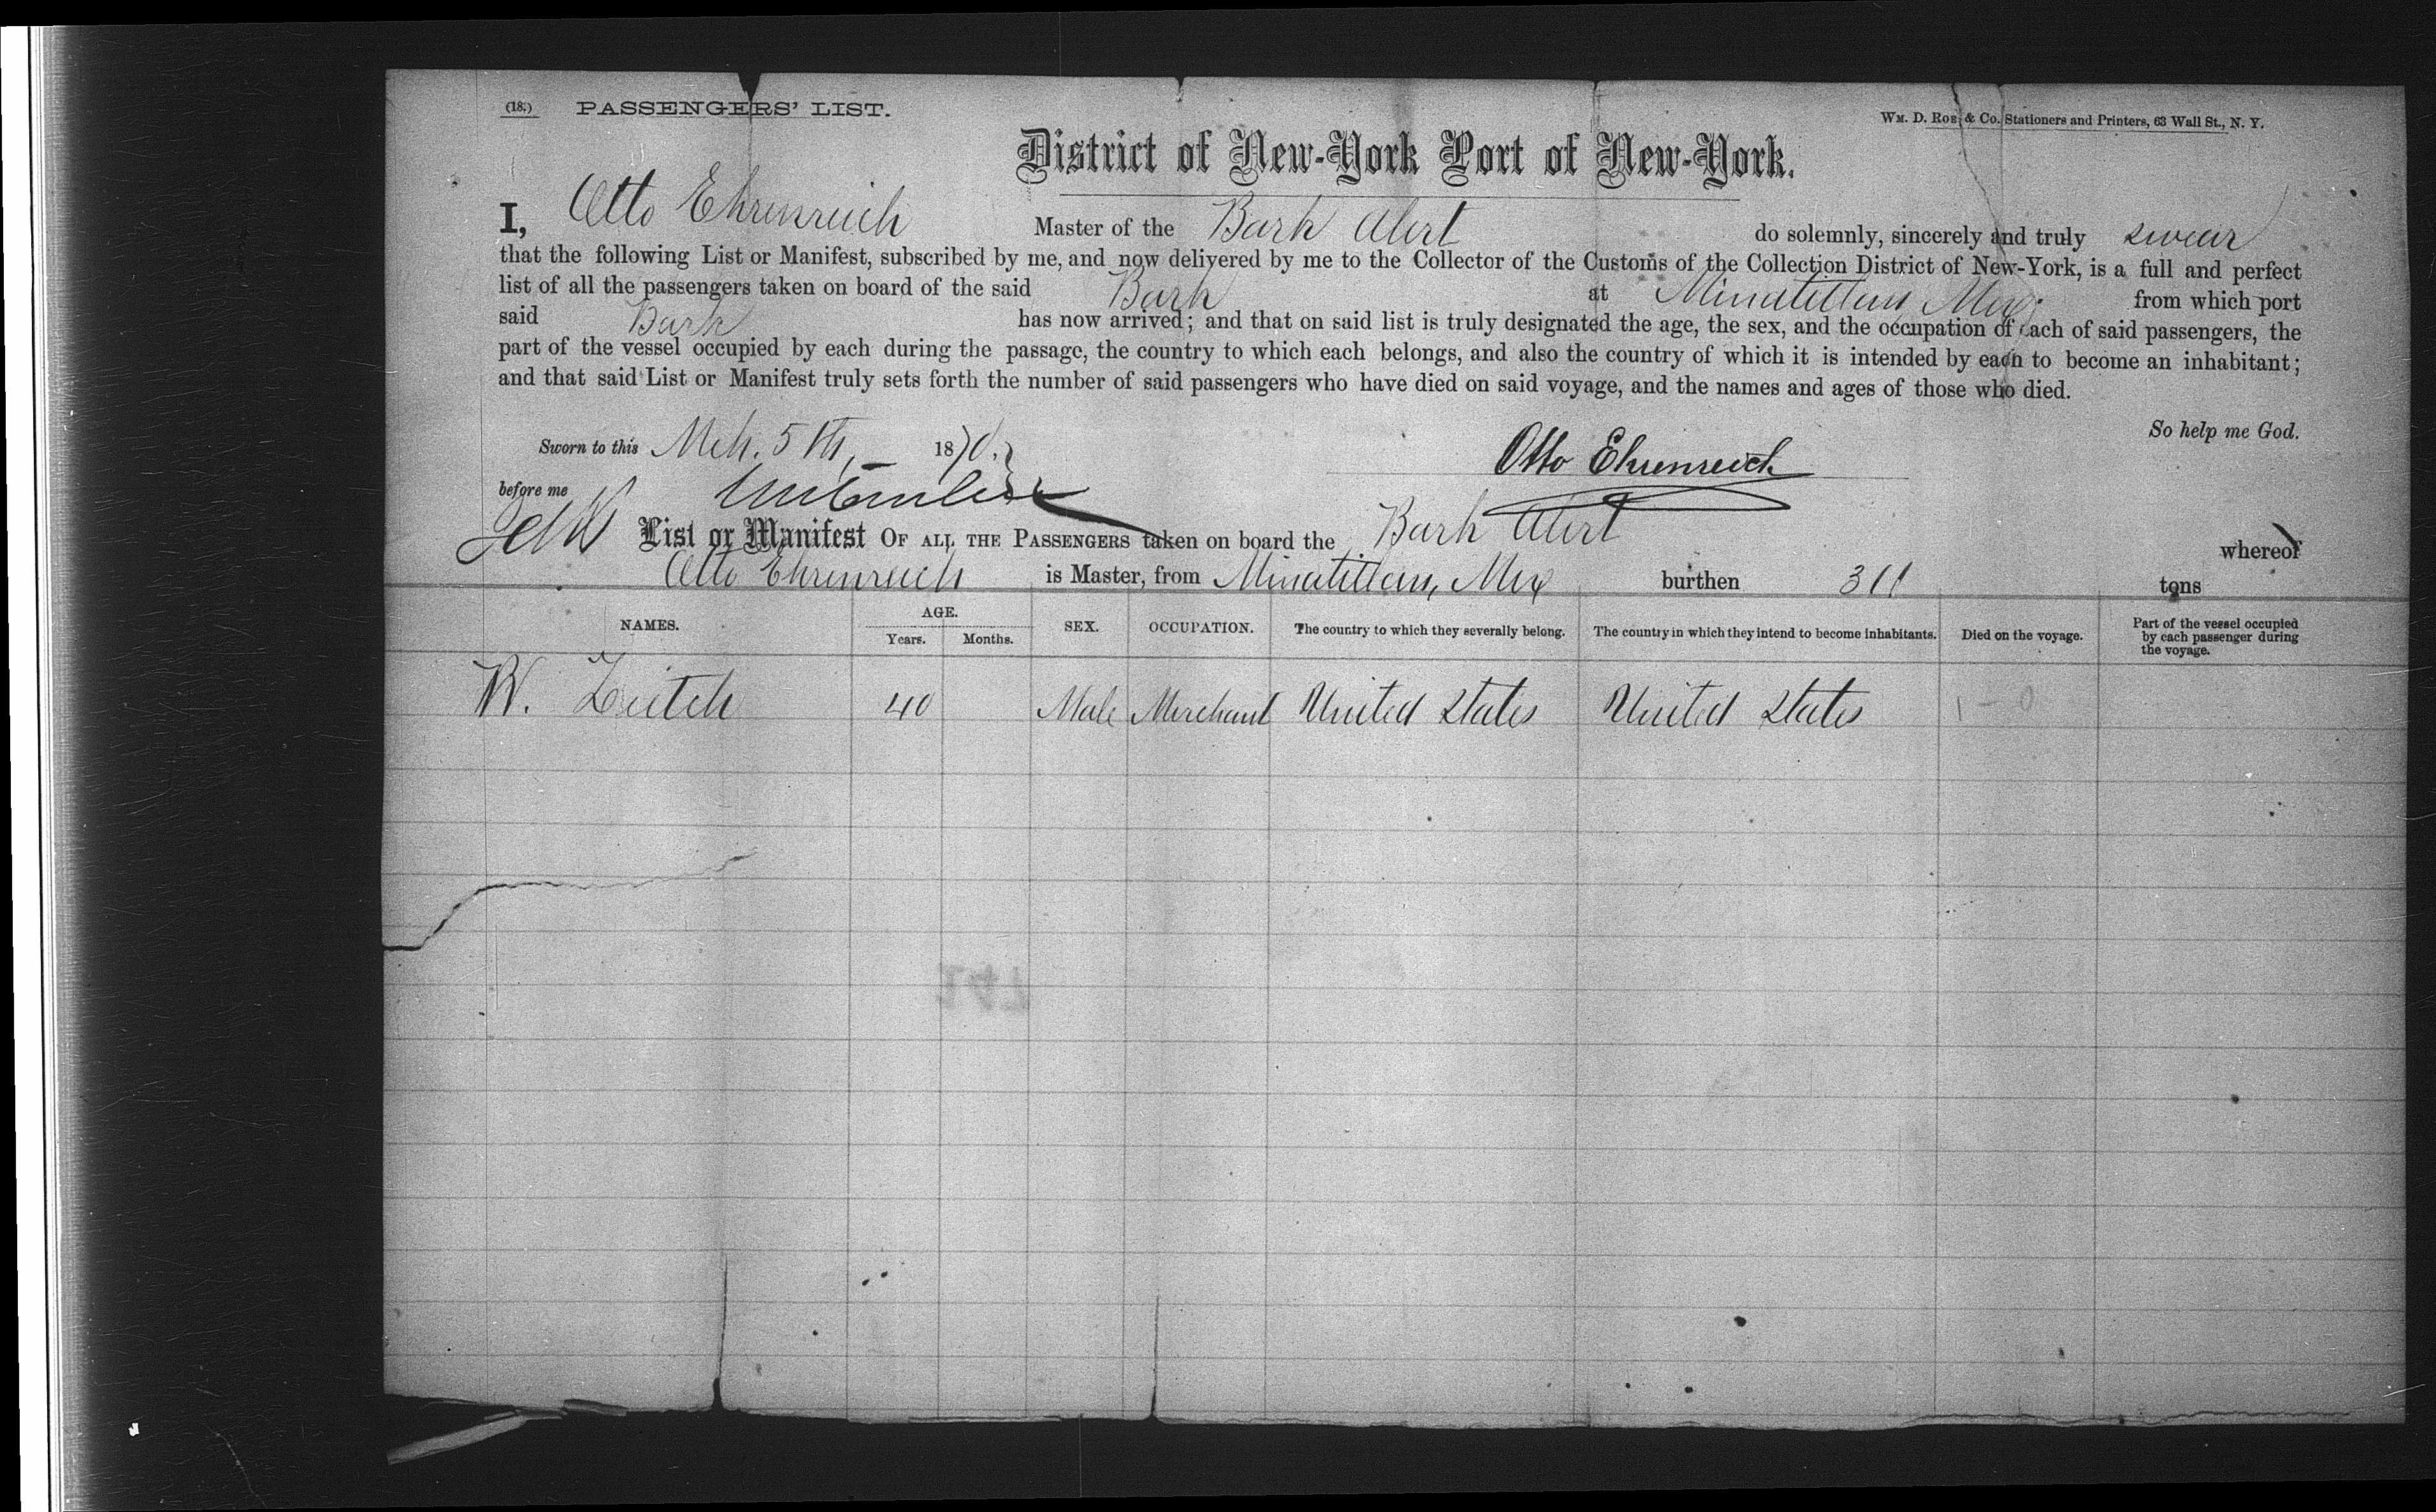 (18.) PASSENGERS' LIST.
WM. D. ROE & CO. Stationers and Printers, 63 Wall St., N. Y.
District of New-York Port of New-York.
I, Otto Ehrenreich Master of the Bark Alert do solemnly, sincerely and truly swear
that the following List or Manifest, subscribed by me, and now delivered by me to the Collector of the Customs of the Collection District of New-York, is a full and perfect
list of all the passengers taken on board of the said Bark at Minatitlan Mex. from which port
said Bark has now arrived; and that on said list is truly designated the age, the sex, and the occupation of each of said passengers, the
part of the vessel occupied by each during the passage, the country to which each belongs, and also the country of which it is intended by each to become an inhabitant;
and that said List or Manifest truly sets forth the number of said passengers who have died on said voyage, and the names and ages of those who died.
So help me God.
Sworn to this Mch. 5th, 1870.
Otto Ehrenreich
before me
List or Manifest OF ALL THE PASSENGERS taken on board the Bark Alert whereof
Otto Ehrenreich is Master, from Minatitlan, Mex burthen 311 tons
NAMES. AGE. Years. Months. SEX. OCCUPATION. The country to which they severally belong. The country in which they intend to become inhabitants. Died on the voyage. Part of the vessel occupied by each passenger during the voyage.
W. 40 Male Merchant United States United States 1 - 0